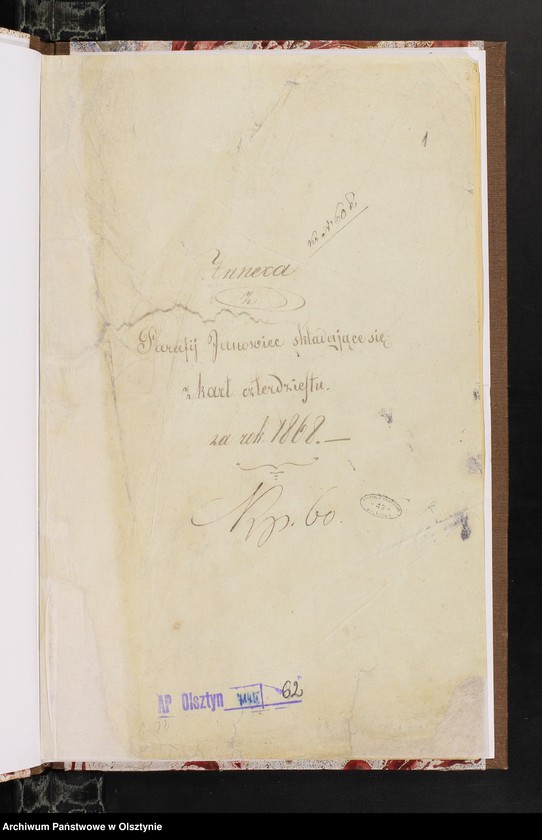 1
Annexa
z
Parafij Janowiec składające się
z kart czterdziestu.
za rok 1868.
Np. 60.
AP Olsztyn 62
Archiwum Państwowe w Olsztynie